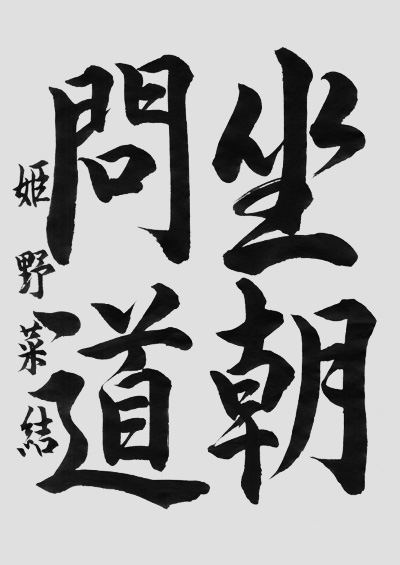 坐朝
問道
姫野菜結